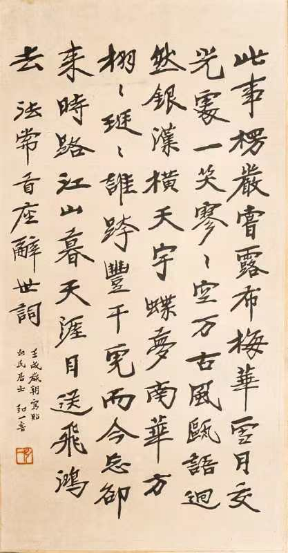 此事楞嚴嘗露布梅華雪月交
光處一笑寥〻空万古風甌語迥
然銀漢橫天宇蝶夢南華方
栩〻珽〻誰跨豐干虎而今忘卻
来時路江山暮天涯目送飛鴻
去 法常首座辭世詞
壬戌歲朝寫貽
民居士 一音